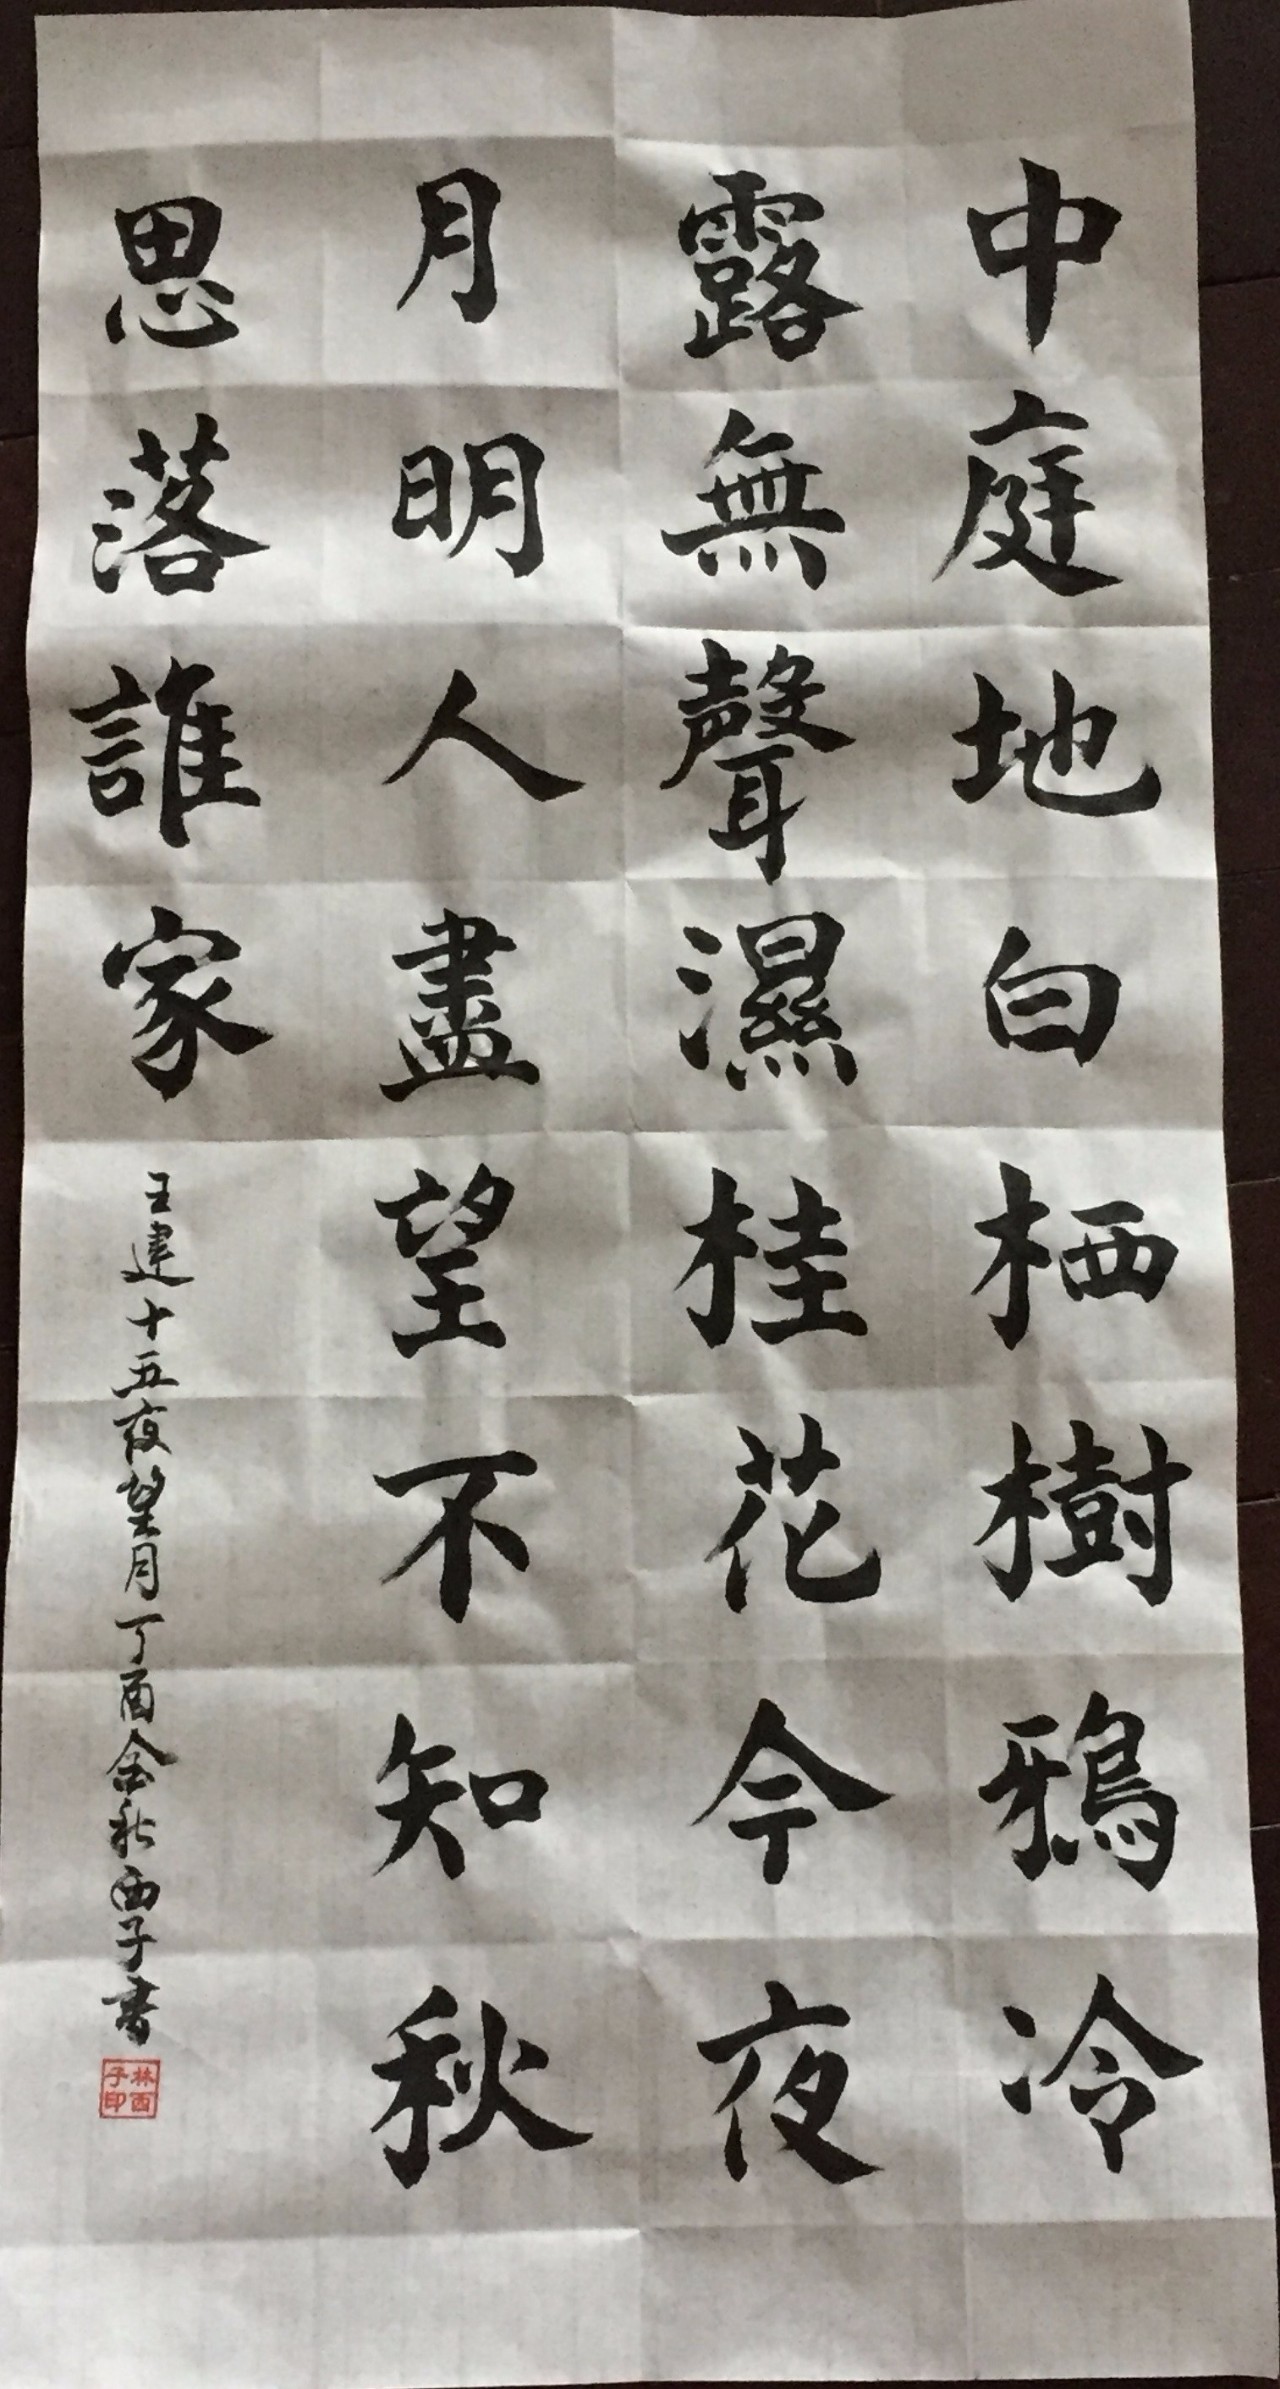 中庭地白栖樹鴉冷
露無聲濕桂花今夜
月明人盡望不知秋
思落誰家
王建十五夜望月丁酉金秋西子書
林西子印